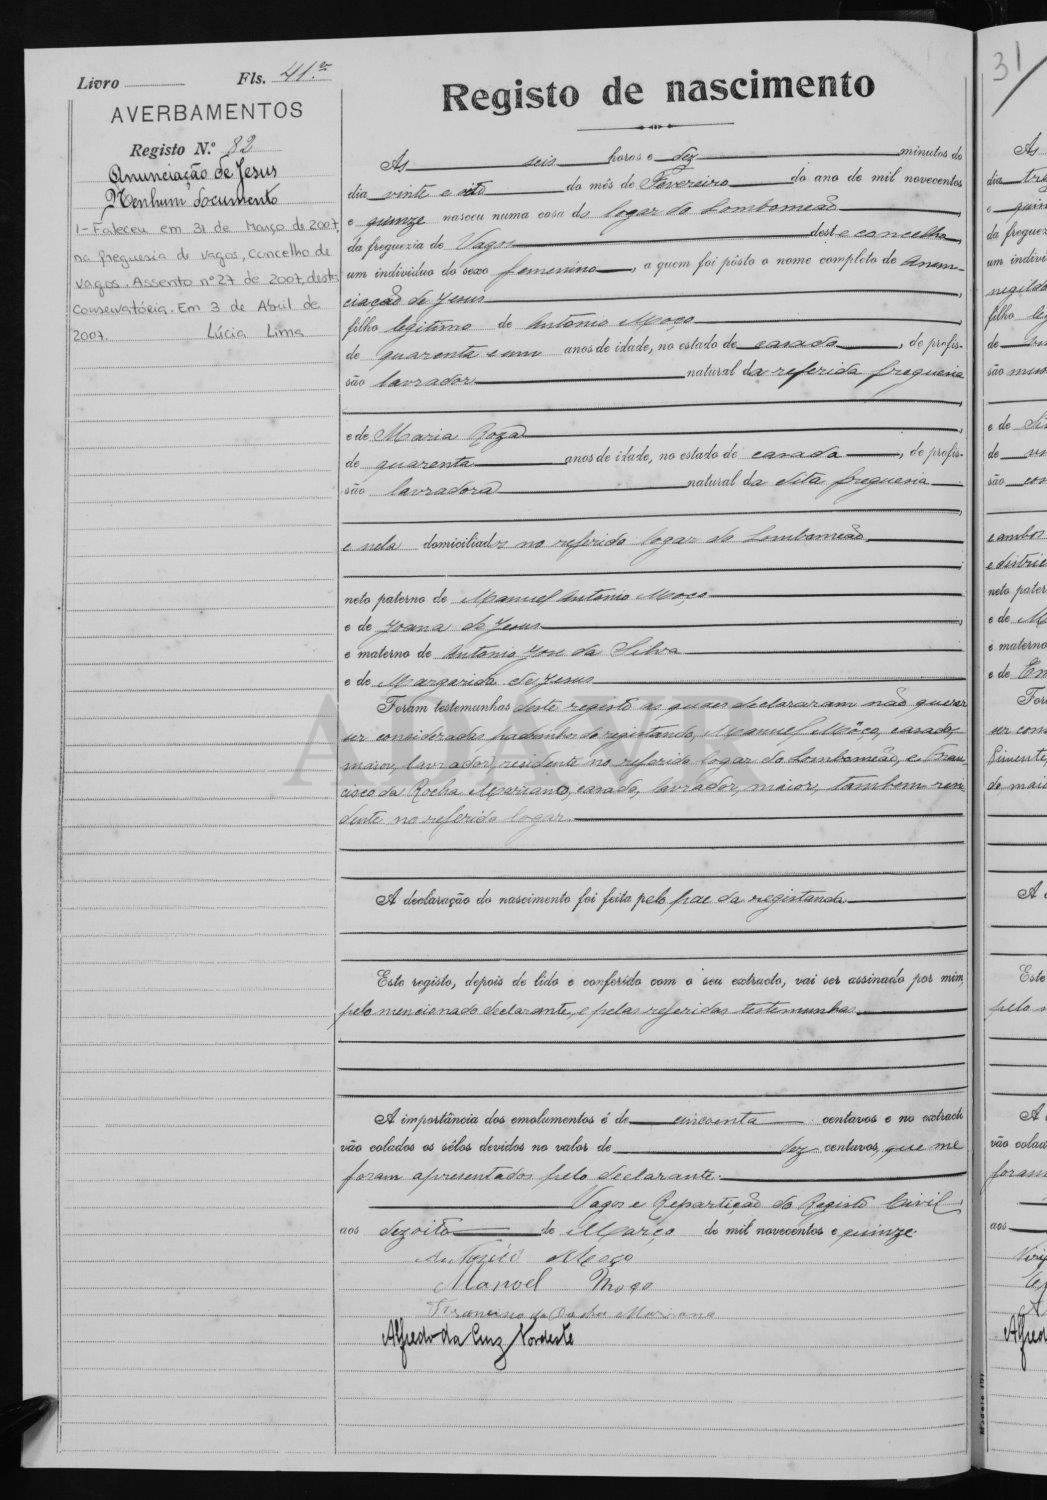 Livro
Fls. 41.v
AVERBAMENTOS
Registo N.º 82
Anunciação de Jesus
Nenhum documento
1- Faleceu em 31 de Março de 2007,
na freguesia de Vagos, Concelho de
Vagos. Assento nº 27 de 2007, desta
Conservatória. Em 3 de Abril de
2007. Lúcia Lima
Registo de nascimento
As seis horas e dez minutos do
dia vinte e oito do mês de Fevereiro do ano de mil novecentos
e quinze nasceu numa casa do logar do Lombomeão,
da freguezia de Vagos deste concelho,
um individuo do sexo femenino, a quem foi pôsto o nome completo de Anun-
ciação de Jesus,
filho legitimo de Antonio Moço
de quarenta e um anos de idade, no estado de casado, de profis-
são lavrador natural da referida freguesia
e de Maria Roza,
de quarenta anos de idade, no estado de casada, de profis-
são lavradora natural da dita freguesia
e nela domiciliados no referido logar do Lombomeão
neto paterno de Manuel Antonio Moço
e de Joana de Jesus,
e materno de Antonio José da Silva
e de Margarida de Jesus
Foram testemunhas deste registo as quaes declararam não querer
ser consideradas padrinhos do registando, Manuel Môço, casado,
maior, lavrador, residente no referido logar do Lombomeão, e Fran-
cisco da Rocha Mariano, casado, lavrador, maior, tambem resi-
dente no referido logar.
ADAVR
A declaração do nascimento foi feita pelo pae da registanda
Este registo, depois de lido e conferido com o seu extracto, vai ser assinado por mim,
pelo mencionado declarante, e pelas referidas testemunhas.
A importância dos emolumentos é de cincoenta centavos e no extracto
vão colados os sêlos devidos no valor de dez centavos, que me
foram apresentados pelo declarante.
Vagos e Repartição do Registo Civil,
aos dezoito de Março de mil novecentos e quinze.
Antonio Moço
Manoel Moço
Francisco da Rocha Mariano
Alfredo da Cruz Nordeste
31
As
dia
e quin
da freguez
um indivi
filho
de
são
e de
de
são
e ambos
neto pater
e de
e materno
e de
For
ser cons
A
Este
pelo
A
vão colad
foram
aos
Alfred